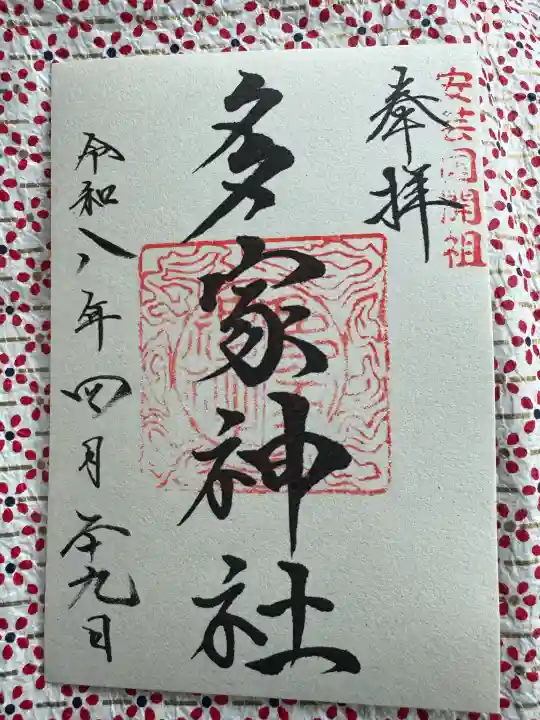 安芸国開祖
奉拝
多家神社
令和八年四月二十九日